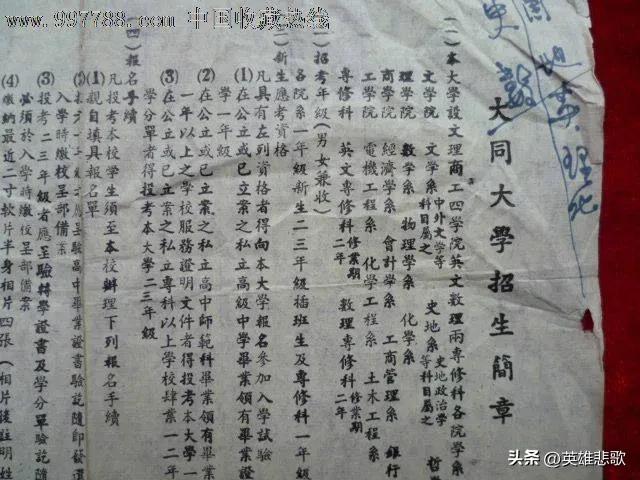 www.997788.com 中国收藏热线
大同大學招生簡章
(一)本大學設文理商工四學院英文數理兩專修科各院學系
文學院 文學系中外文學等科目屬之 史地系史地政治學等科目屬之 哲
理學院 數學系 物理學系 化學系
商學院 經濟學系 會計學系 工商管理系 銀行
工學院 電機工程系 化學工程系 土木工程系
專修科 英文專修科修業期二年 數理專修科修業期二年
(二)招考年級(男女兼收)
各院系一年級新生二三年級插班生及專修科一年級
(三)新生應考資格
凡具有左列資格者得向本大學報名參加入學試驗
(1)在公立或已立案之私立高級中學畢業領有畢業證
學一年級
(2)在公立或已立案之私立高中師範科畢業領有畢業
一年以上之學校服務證明文件者得投考本大學一
(3)在公立或已立案之私立專科以上學校肄業一二年
學分單者得投考本大學二三年級
(四)報名手續
凡投考本校學生須至本校辦理下列報名手續
(1)親自填具報名單
高中畢業證書驗訖隨印發還
入學時繳校呈部備案
(3)投考二三年級者應呈驗轉學證書及學分單驗訖隨
必須於入學時繳校呈部備案
(4)繳納最近二寸軟片半身相片四張(相片後註明姓
头条 @英雄悲歌